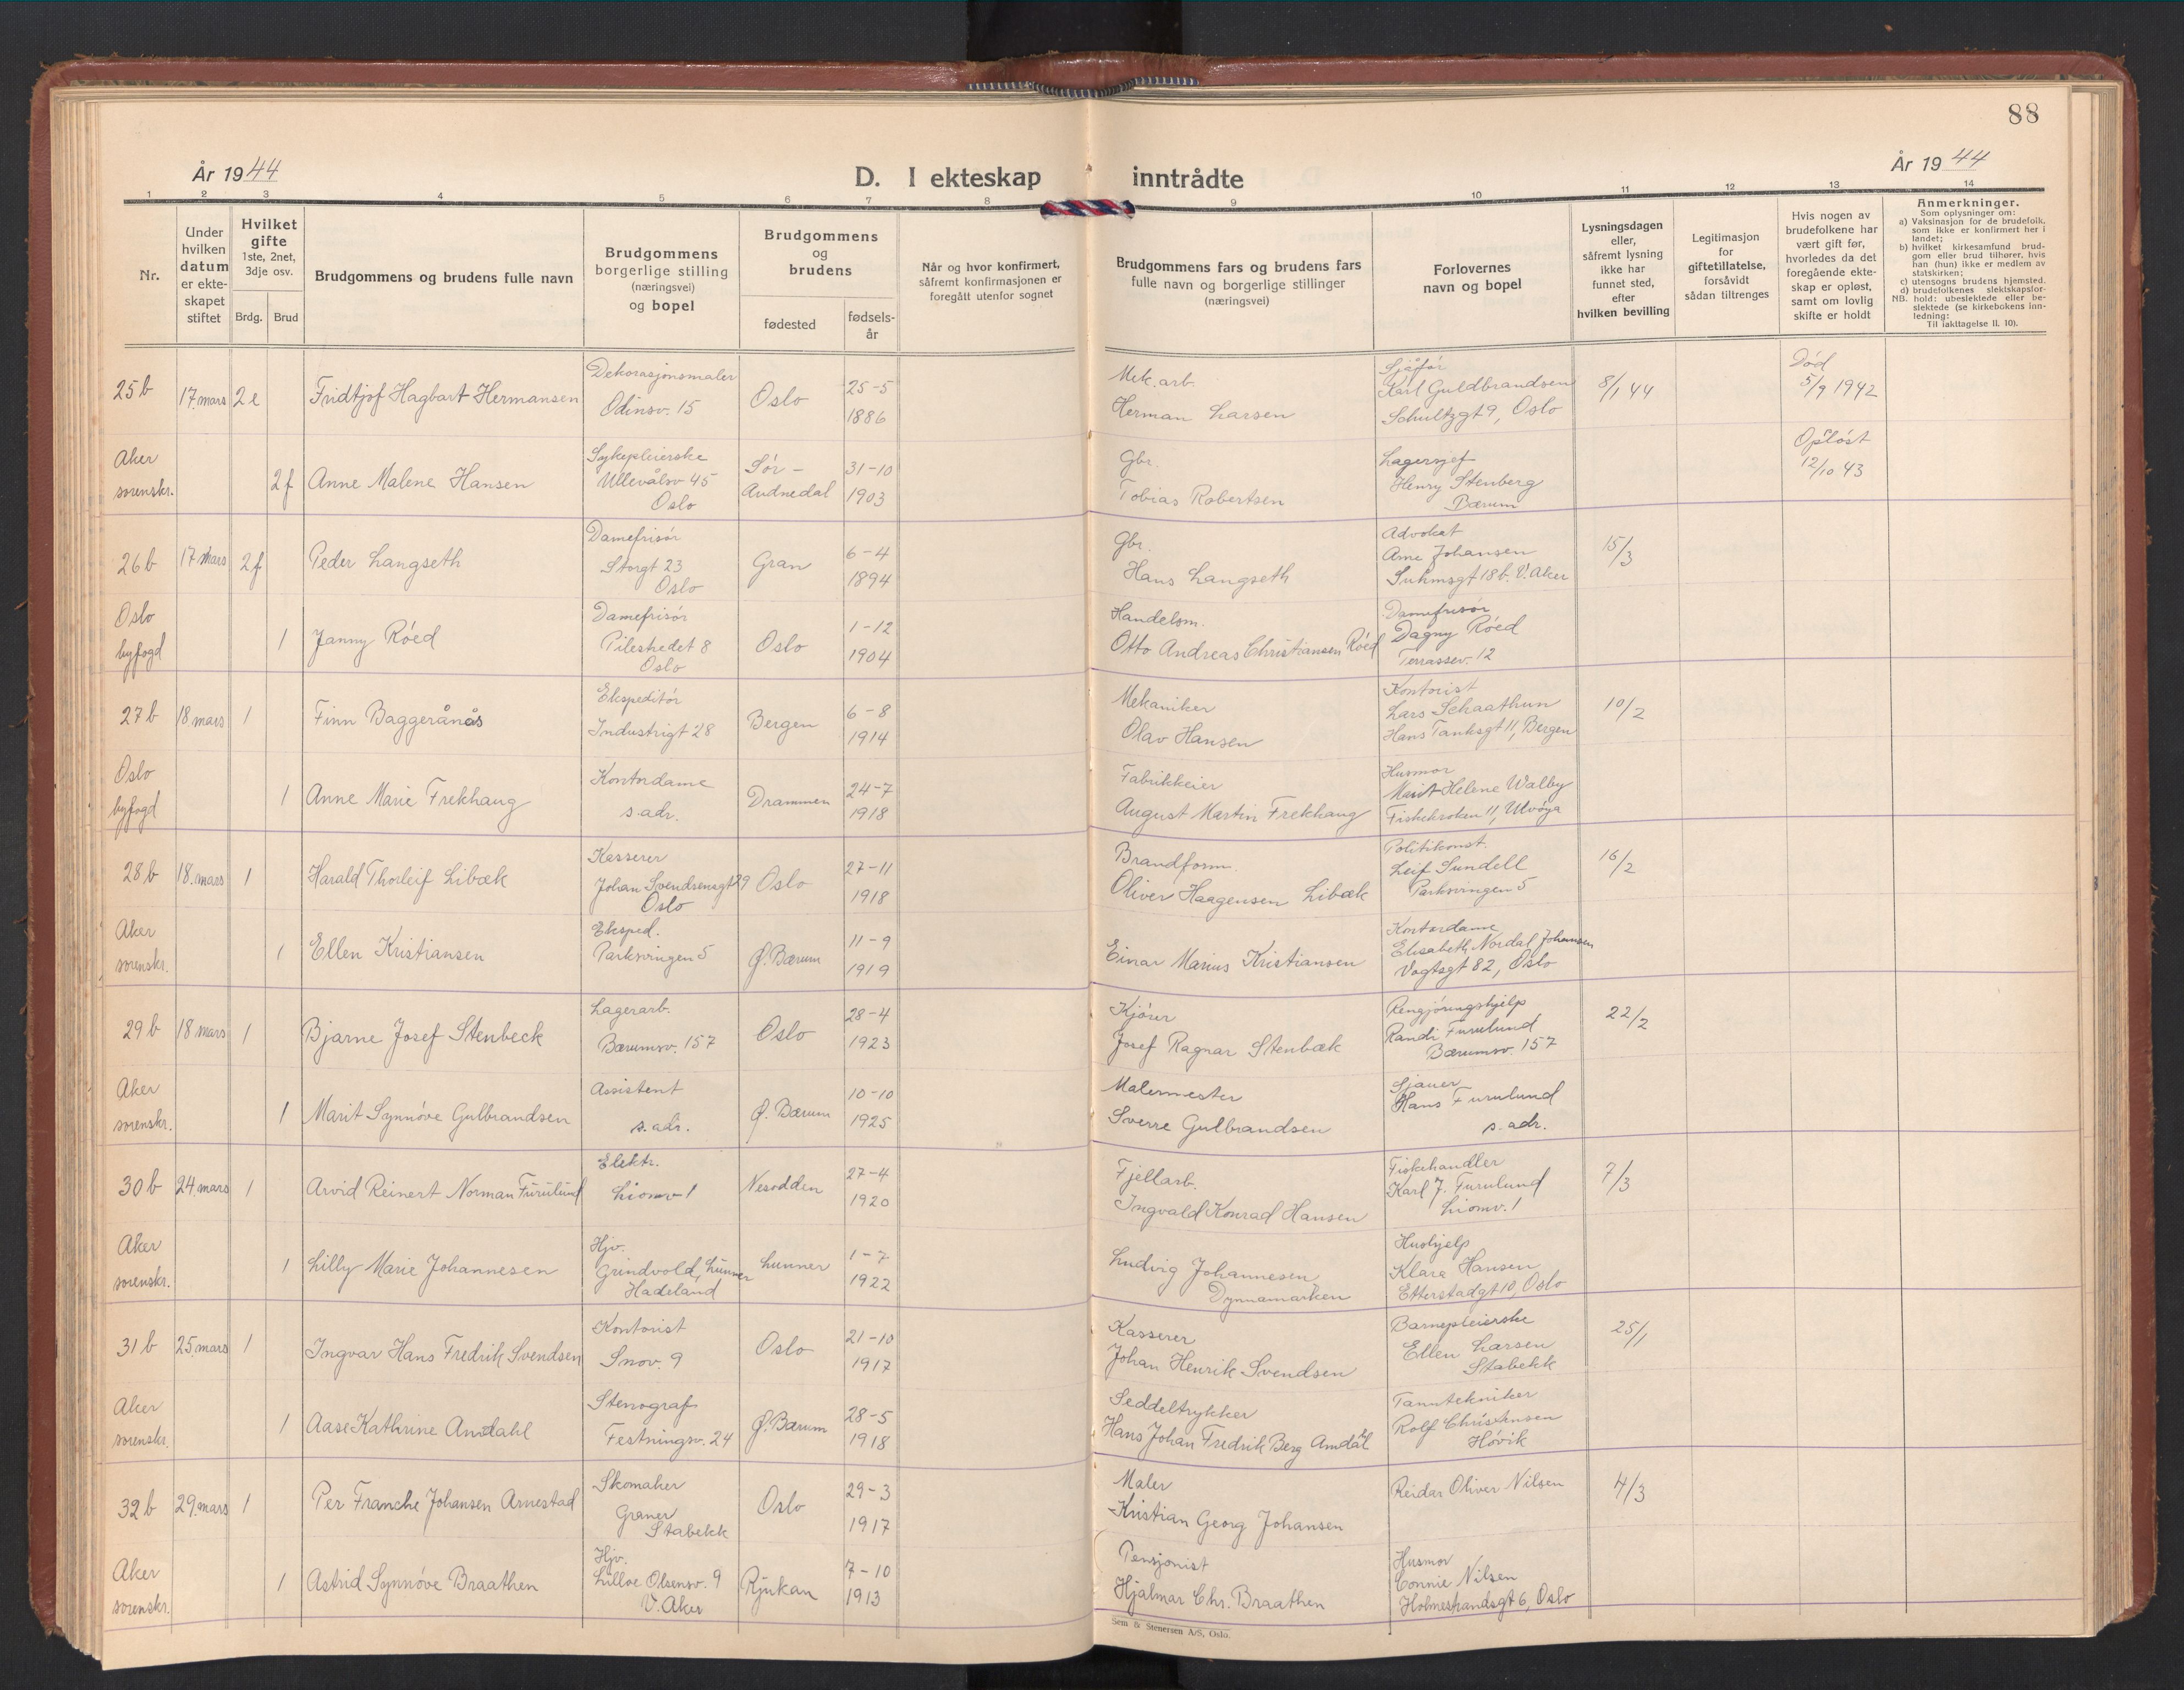 88
År 1944
D. I ekteskap inntrådte
År 1944
1 2 3 4 5 6 7 8 9 10 11 12 13 14
Nr.
Under hvilken datum er ekte-skapet stiftet
Hvilket gifte
1ste, 2net, 3dje osv.
Brdg. Brud
Brudgommens og brudens fulle navn
Brudgommens borgerlige stilling (næringsvei) og bopel
Brudgommens og brudens
fødested
fødsels-år
Når og hvor konfirmert, såfremt konfirmasjonen er foregått utenfor sognet
Brudgommens fars og brudens fars fulle navn og borgerlige stillinger (næringsvei)
Forlovernes navn og bopel
Lysningsdagen eller, såfremt lysning ikke har funnet sted, efter hvilken bevilling
Legitimasjon for giftetillatelse, forsåvidt sådan tiltrenges
Hvis nogen av brudefolkene har vært gift før, hvorledes da det foregående ekte-skap er opløst, samt om lovlig skifte er holdt
Anmerkninger.
Som oplysninger om:
a) Vaksinasjon for de brudefolk, som ikke er konfirmert her i landet;
b) hvilket kirkesamfund brud-gom eller brud tilhører, hvis han (hun) ikke er medlem av statskirken;
c) utensogns brudens hjemsted.
d) brudefolkenes slektskapsfor-hold: ubeslektede eller be-slektede (se kirkebokens inn-ledning:
NB.
Til iakttagelse II. 10).
25b 17. mars 2e Fridtjof Hagbart Hermansen Dekorasjonsmaler Odinsv. 15 Oslo 25-5 1886 Mek. arb. Herman Larsen Sjåfør Karl Guldbrandsen Schultzgt 9, Oslo 8/1 44 Død 5/9 1942
Aker sorenskr. 2f Anne Malene Hansen Sykepleierske Ullevålsv 45 Oslo Sør-Audnedal 31-10 1903 Gbr. Tobias Robertsen Lagersjef Henry Stenberg Bærum Opløst 12/10 43
26b 17 mars 2f Peder Langseth Damefrisør Storgt 23 Oslo Gran 6-4 1894 Gbr. Hans Langseth Advokat Arne Johansen Suhmsgt 18b. V. Aker 15/3
Oslo byfogd 1 Janny Røed Damefrisør Pilestredet 8 Oslo Oslo 1-12 1904 Handelsm. Otto Andreas Christiansen Røed Damefrisør Dagny Røed Terrassev. 12
27b 18 mars 1 Finn Baggerånås Ekspeditør Industrigt 28 Bergen 6-8 1914 Mekaniker Olav Hansen Kontorist Lars Schaathun Hans Tanksgt 11, Bergen 10/2
Oslo byfogd 1 Anne Marie Frekhaug Kontordame s. adr. Drammen 24-7 1918 Fabrikkeier August Martin Frekhaug Husmor Marit Helene Walby Fiskekroken 11, Ulvöya
28b 18. mars 1 Harald Thorleif Libæk Kasserer Johan Svendsensgt 29 Oslo Oslo 27-11 1918 Brandform. Oliver Haagensen Libæk Politikonst. Leif Sundell Parksvingen 5 16/2
Aker sorenskr. 1 Ellen Kristiansen Eksped. Parksvingen 5 Ø. Bærum 11-9 1919 Einar Marius Kristiansen Kontordame Elisabeth Nordal Johansen Vogtsgt 82, Oslo
29b 18 mars 1 Bjarne Josef Stenbeck Lagerarb. Bærumsv. 157 Oslo 28-4 1923 Kjører Josef Ragnar Stenbæk Rengjøringshjelp Randi Furulund Bærumsv. 157 22/2
Aker sorenskr. 1 Marit Synnøve Gulbrandsen Assistent s. adr. Ø. Bærum 10-10 1925 Malermester Sverre Gulbrandsen Sjauer Hans Furulund s. adr.
30b 24. mars 1 Arvid Reinert Norman Furulund Elektr. Liomv 1 Nesodden 27-4 1920 Fjellarb. Ingvald Konrad Hansen Fiskehandler Karl J. Furulund Liomv. 1 7/3
Aker sorenskr. 1 Lilly Marie Johannesen Hjv. Grindvold, Lunner Hadeland Lunner 1-7 1922 Ludvig Johannesen Dynnamarken Hushjelp Klara Hansen Etterstadgt 10, Oslo
31b 25. mars 1 Ingvar Hans Fredrik Svendsen Kontorist Snov. 9 Oslo 21-10 1917 Kasserer Johan Henrik Svendsen Barnepleierske Ellen Larsen Stabekk 25/1
Aker sorenskr. 1 Aase Kathrine Amdahl Stenograf Festningsv. 24 Ø. Bærum 28-5 1918 Seddeltrykker Hans Johan Fredrik Berg Amdahl Tanntekniker Rolf Christensen Høvik
32b 29. mars 1 Per Franche Johansen Arnestad Skomaker Graner Stabekk Oslo 29-3 1917 Maler Kristian Georg Johansen Reidar Oliver Nilsen 4/3
Aker sorenskr. 1 Astrid Synnøve Braathen Hjv. Lilloe Olsensv. 9 V. Aker Rjukan 7-10 1913 Pensjonist Hjalmar Chr. Braathen Husmor Connie Nilsen Holmestrandsgt 6, Oslo
Sem & Stenersen A/S, Oslo.